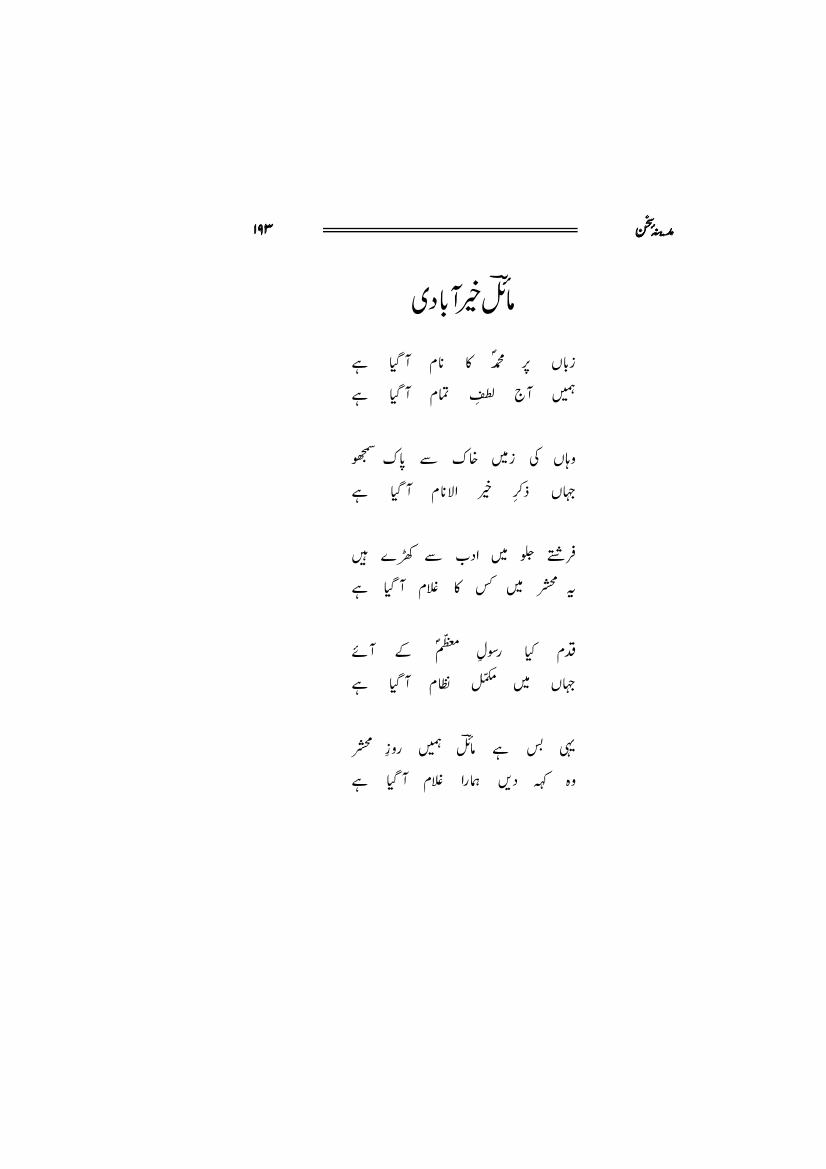 مدینۂ سخن ۱۹۳
مائلؔ خیرآبادی
زباں پر محمدؐ کا نام آگیا ہے
ہمیں آج لطفِ تمام آگیا ہے
وہاں کی زمیں خاک سے پاک سمجھو
جہاں ذکرِ خیر الانام آگیا ہے
فرشتے جلو میں ادب سے کھڑے ہیں
یہ محشر میں کس کا غلام آگیا ہے
قدم کیا رسولِ معظّمؐ کے آئے
جہاں میں مکمّل نظام آگیا ہے
یہی بس ہے مائلؔ ہمیں روزِ محشر
وہ کہہ دیں ہمارا غلام آگیا ہے